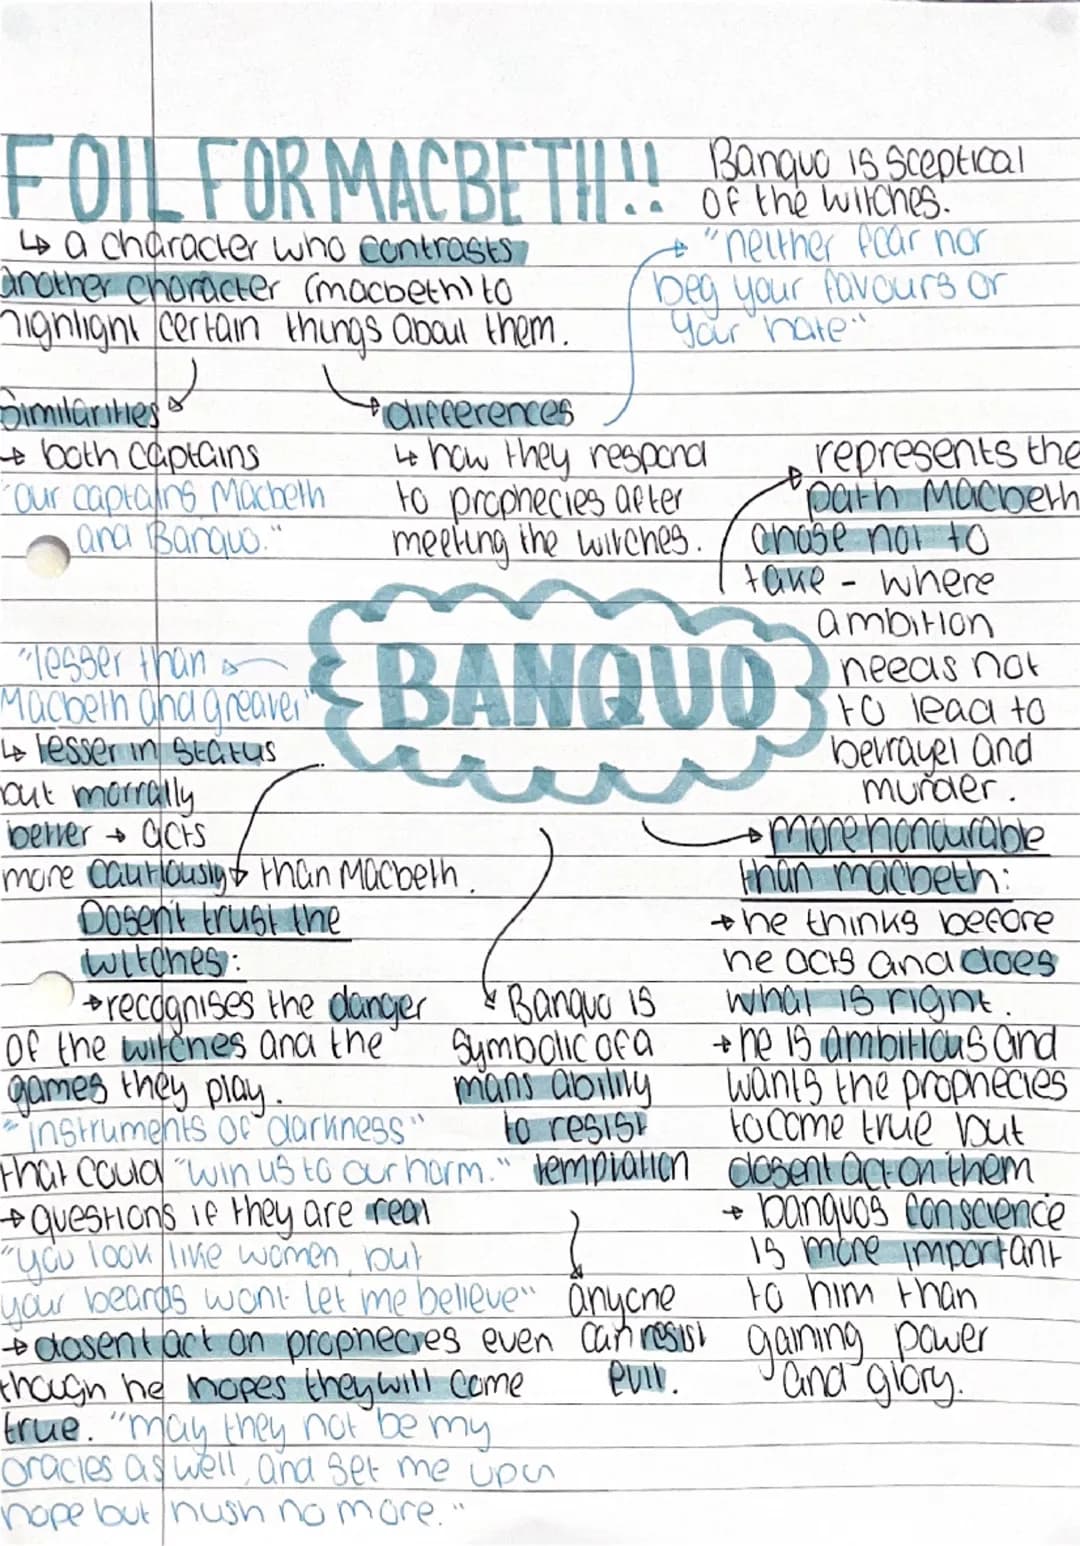 FOIL FOR MACBETH!!
↳ a character who contrasts
another character (macbeth) to
highlight certain things about them.
Banquo is sceptical
of the witches.
"neither fear nor
beg your favours or
your hate"
Similarities
→ both captains
"our captains Macbeth
and Banquo."
differences
↳ how they respond
to prophecies after
meeting the witches.
represents the
path Macbeth
chose not to
take - where
ambition
needs not
to lead to
betrayel and
murder.
BANQUO
"lesser than
Macbeth and greater"
↳ lesser in status
but morrally
better → acts
more cautiously than Macbeth.
Dosen't trust the
witches:
→ recognises the danger
of the witches and the
games they play.
"instruments of darkness"
that could "win us to our harm."
→ questions if they are real
"you look like women, but
your beards wont let me believe"
→ dosent act on prophecies even
though he hopes they will come
true. "may they not be my
oracles as well, and set me up in
hope but hush no more."
Banquo is
symbolic of a
mans ability
to resist
temptation
anyone
can resist
evil.
more honourable
than macbeth:
→ he thinks before
he acts and does
what is right.
→ he is ambitious and
wants the prophecies
to come true but
dosent act on them
→ banquos conscience
is more important
to him than
gaining power
and glory.